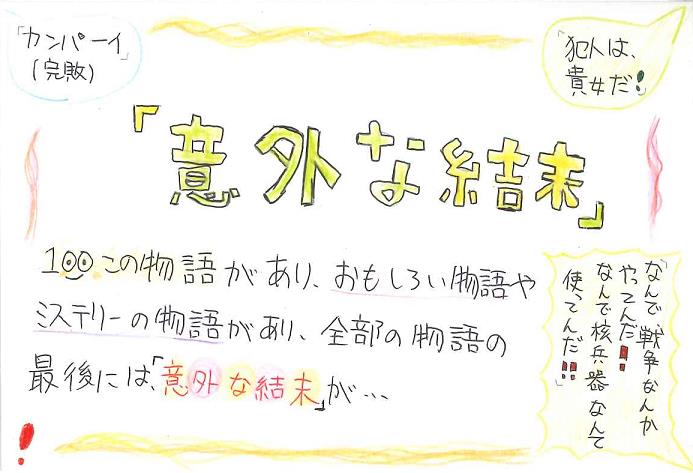 「カンパーイ」
(完敗)
「犯人は、
貴女だ!
「意外な結末」
100この物語があり、おもしろい物語や
ミステリーの物語があり、全部の物語の
最後には、「意外な結末」が…
「なんで、戦争なんか
やってんだ!!
なんで核兵器なんて
使ってんだ!!」
!